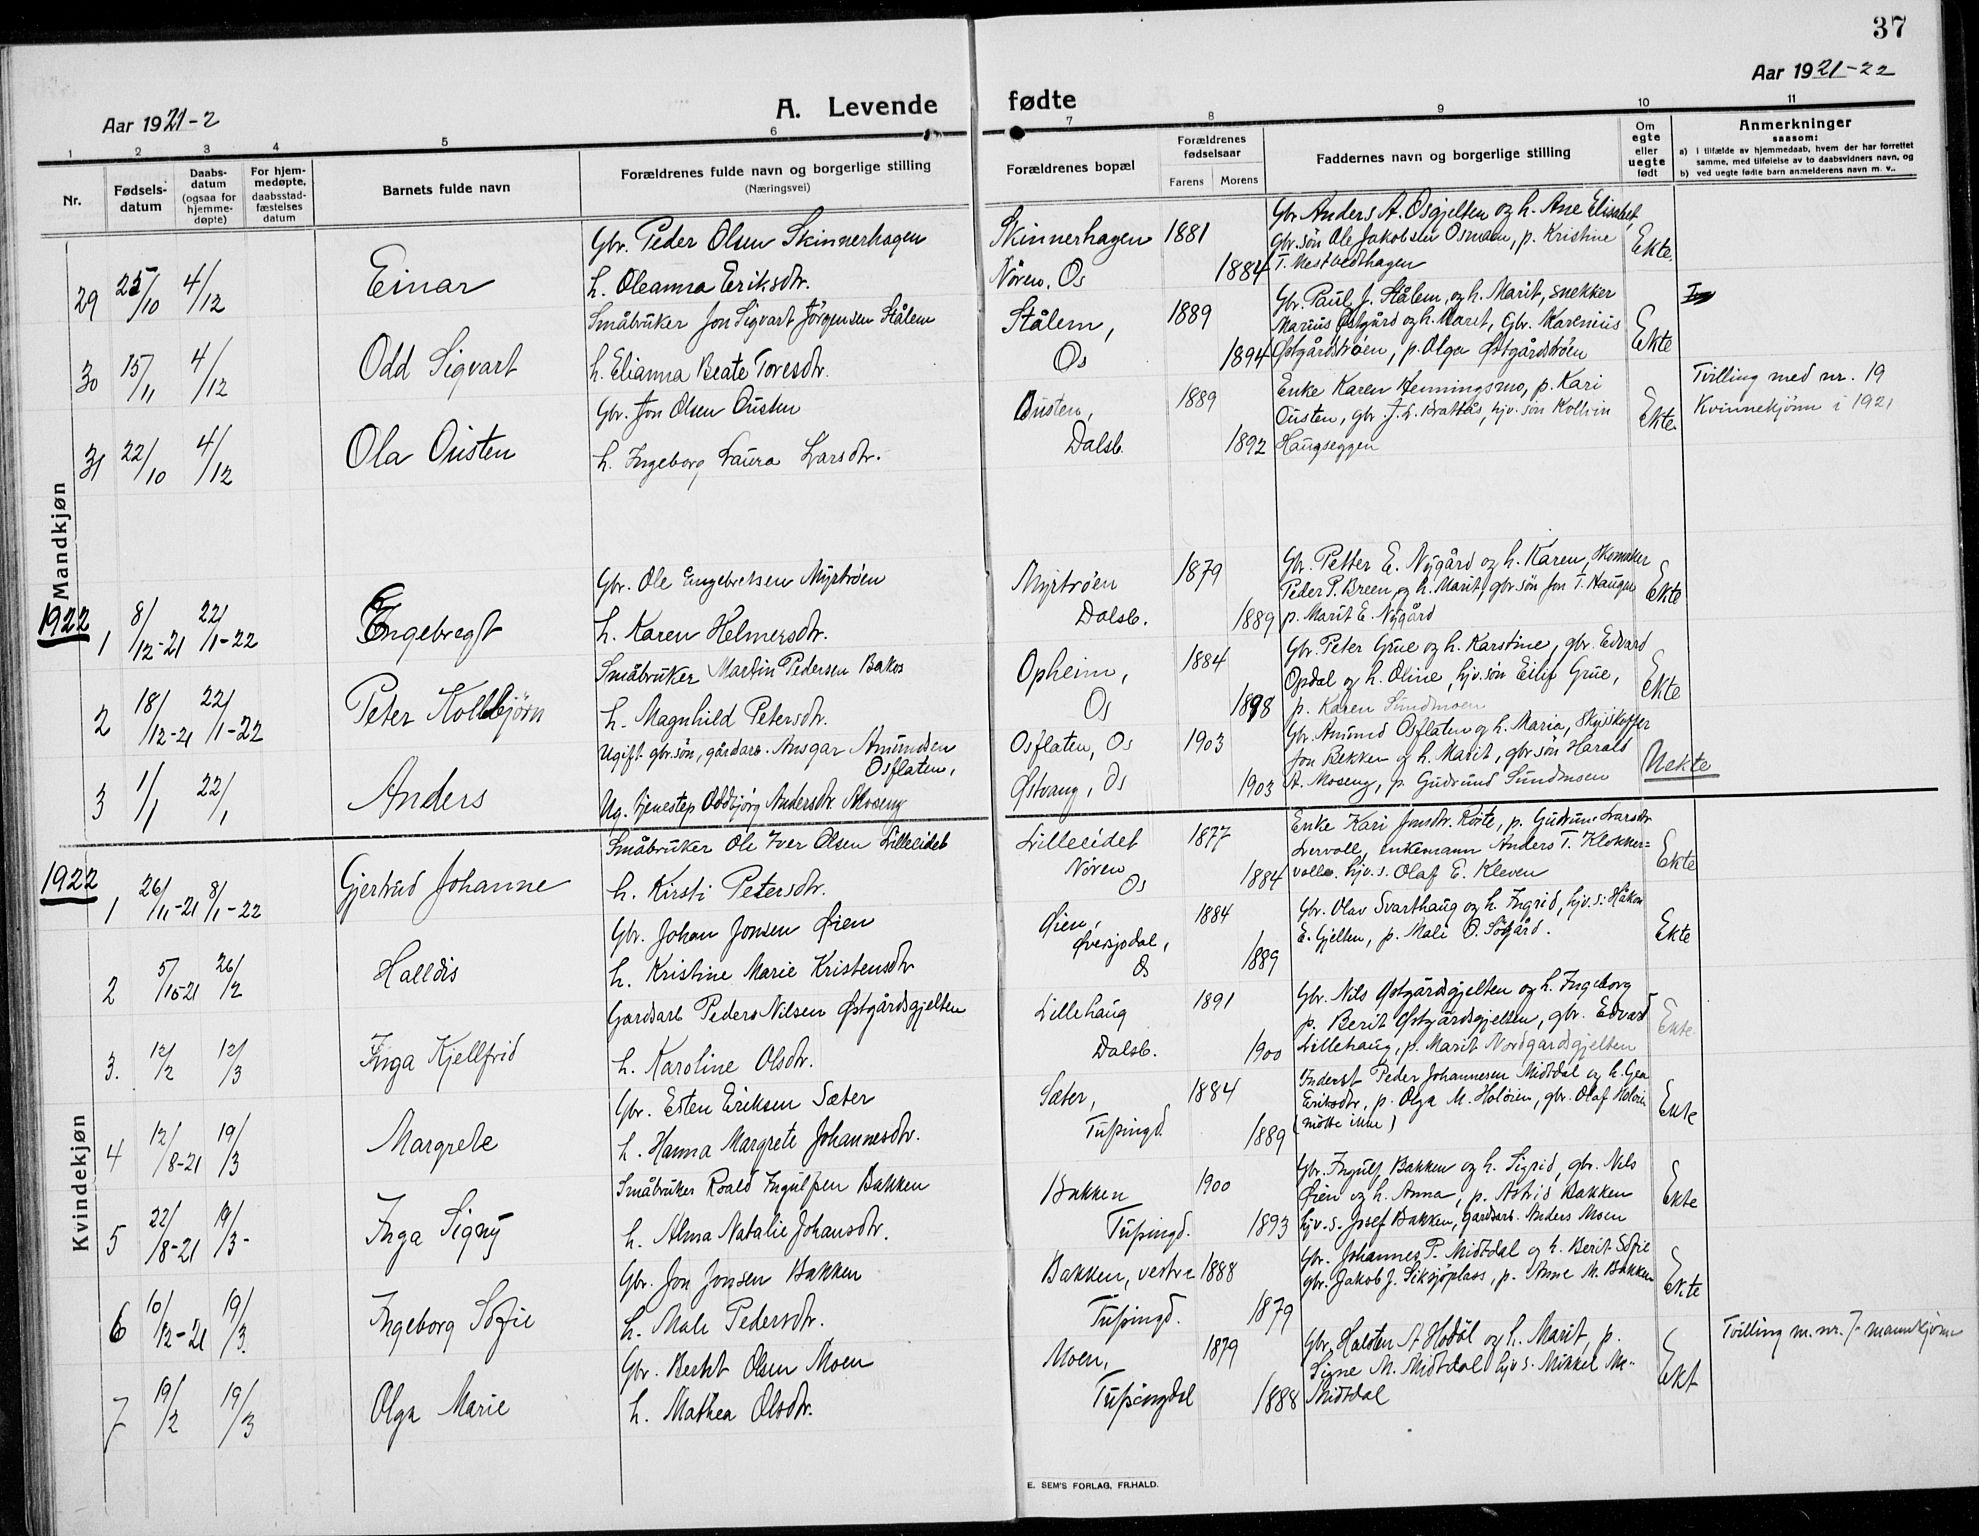 37
Aar 1921-2
A. Levende
fødte
Aar 1921-22
1 2 3 4 5 6 7 8 9 10 11
Nr.
Fødsels-
datum
Daabs-
datum
(ogsaa for
hjemme-
døpte)
For hjem-
medøpte,
daabsstad-
fæstelses
datum
Barnets fulde navn
Forældrenes fulde navn og borgerlige stilling
(Næringsvei)
Forældrenes bopæl
Forældrenes
fødselsaar
Farens
Morens
Faddernes navn og borgerlige stilling
Om
egte
eller
uegte
født
Anmerkninger
saasom:
a) i tilfælde av hjemmedaab, hvem der har forrettet
samme, med tilføielse av to daabsvidners navn, og
b) ved uegte fødte barn anmelderens navn m. v..
Mandkjøn
29 25/10 4/12 Einar
Gbr. Peder Olsen Skinnerhagen
h. Oleanna Eriksdtr.
Skinnerhagen 1881
Nøren, Os 1884
Gbr. Anders A. Osgjelten og h. Ane Elisabet,
gbr.søn Ole Jakobsen Osmoen, p. Kristine
T. Nestbedhagen
Ekte
30 15/11 4/12 Odd Sigvart
Småbruker Jon Sigvart Jörgensen Stålem
h. Elianna Beate Toresdtr.
Stålem, 1889
Os 1894
Gbr. Paul J. Stålem, og h. Marit, snekker
Marius Østgård og h. Marit, Gbr. Karenius
Østgårdstrøen, p. Olga Østgårdstrøen
Ekte
31 22/10 4/12 Ola Ousten
Gbr. Jon Olsen Ousten
h. Ingeborg Laura Larsdtr.
Ousten, 1889
Dalsb. 1892
Enke Karen Henningsmo, p. Kari
Ousten, gbr. J. L. Brattås, hjv. søn Kolbin
Haugseggen
Ekte
Tvilling med nr. 19
Kvinnekjönn i 1921
1922
1 8/12-21 22/1-22 Engebregt
Gbr. Ole Engebretsen Myrtrøen
h. Karen Helmersdtr.
Myrtrøen 1879
Dalsb. 1889
Gbr. Petter E. Nygård og h. Karen, skomaker
Peder P. Breen og h. Marit, gbr søn Jon T. Haugen
p. Marit E. Nygård
Ekte
2 18/12-21 22/1-22 Peter Kolbjörn
Småbruker Martin Pedersen Bakos
h. Magnhild Petersdtr.
Opheim, 1884
Os 1898
Gbr. Peter Grue og h. Karstine, gbr. Edvard
Opdal og h. Oline, hjv. søn Eilif Grue,
p. Karen Sundmoen
Ekte
3 1/1 22/1 Anders
Ugift gbr. søn, gårdarb. Ansgar Amundsen
Osflaten,
Ug. tjenestep Oddbjörg Andersdtr. Moseng
Osflaten, Os 1903
Østvang, Os 1903
Gbr. Amund Osflaten og h. Maria, Skysskaffer
Jon Bekken og h. Marit, gbr søn Harald
A. Moseng, p. Gudrund Sundmoen
Uekte
Kvindekjøn
1922
1 26/11-21 8/1-22 Gjertrud Johanne
Småbruker Ole Iver Olsen Lilleeidet
h. Kirsti Petersdtr.
Lilleeidet 1877
Nøren
Os 1884
Enke Kari Jonsdtr. Røste, p. Gudrun Larsdtr
Lervoll, enkemann Anders T. Klokker=
volle. hjv. s. Olaf E. Kleven
Ekte
2 5/10-21 26/2 Halldis
Gbr. Johan Jonsen Øien
h. Kristine Marie Kristensdtr
Øien, 1884
Øversjodal,
Os 1889
Gbr. Olav Svarthaug og h. Ingrid, hjv. s. Håkon
E. Gjelten, p. Mali O. Sögård.
Ekte
3. 12/2 12/3 Inga Kjellfrid
Gardsarb Peder Nilsen Østgårdsgjelten
h. Karoline Olsdtr.
Lillehaug 1891
Dalsb. 1900
Gbr. Nils Østgårdsgjelten og h. Ingeborg
p. Berit Østgårdsgjelten, gbr. Edvard
Lillehaug, p. Marit Nordgardsgjelten
Ekte
4 12/8-21 19/3 Margrete
Gbr. Esten Eriksen Sæter
h. Hanna Margrete Johannesdtr.
Sæter, 1884
Tufsingd. 1889
Inderst Peder Johannesen Midtdal og h. Gea
Eriksdtr, p. Olga M. Holøien, gbr. Olaf Holøien
(møtte ikke)
Ekte
5 22/8-21 19/3- Inga Signy
Småbruker Roald Ingulfsen Bakken
h. Alma Natalie Johansdtr.
Bakken 1900
Tufsingd. 1893
Gbr. Ingulf Bakken og h. Sigrid, gbr. Nils
Øien og h. Anna, p. Astrid Bakken
hjv. s. Josef Bakken, gardsarb. Anders Moen
Ekte
6 10/12-21 19/3. Ingeborg Sofie
Gbr. Jon Jonsen Bakken
h. Mali Pedersdtr.
Bakken, vestre 1888
Tufsingd. 1879
Gbr. Johannes P. Midtdal og h. Berit Sofie
gbr. Jakob J. Siksjöplass, p. Anne M. Bakken
Ekte
7 19/2 19/3 Olga Marie
Gbr. Bertet Olsen Moen
h. Mathea Olsdtr.
Moen, 1879
Tufsingdal 1888
Gbr. Halsten A Hodal og h. Marit, p.
Signe M. Midtdal hjv s. Mikkel M.
Midtdal
Ekt
Tvilling m. nr. 7 mannkjönn
E. SEM'S FORLAG, FR.HALD.